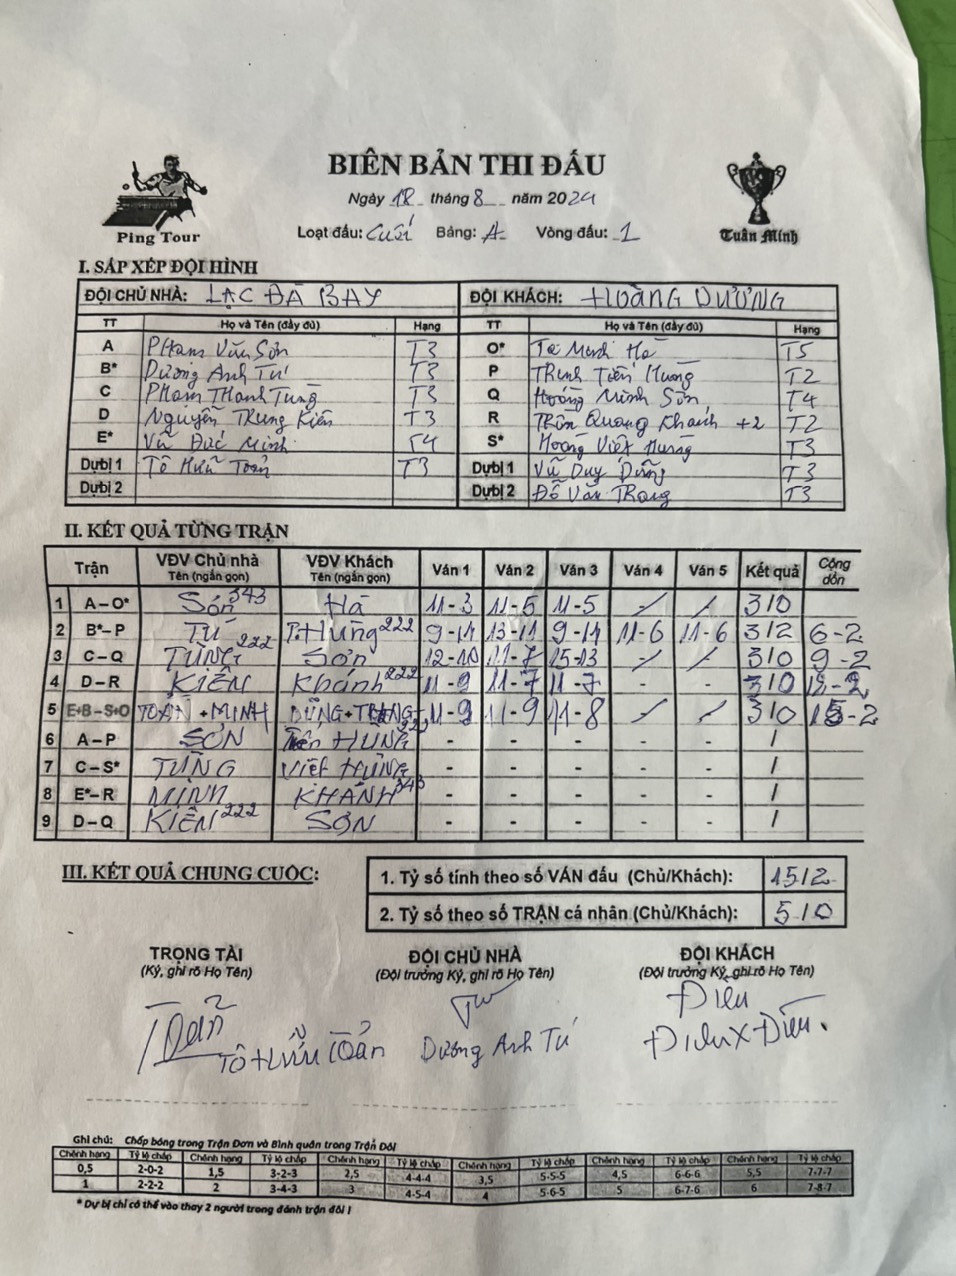 BIÊN BẢN THI ĐẤU
Ngày 18 tháng 8 năm 2024
Ping Tour
Loạt đấu: Cuối Bảng: A Vòng đấu: 1
Tuấn Minh
I. SẮP XẾP ĐỘI HÌNH
ĐỘI CHỦ NHÀ: LẠC ĐÀ BAY ĐỘI KHÁCH: HOÀNG DƯƠNG
TT Họ và Tên (đầy đủ) Hạng TT Họ và Tên (đầy đủ) Hạng
A Phạm Văn Sơn T3 O* Tạ Minh Hà T5
B* Dương Anh Tú T3 P Trịnh Tiến Hưng T2
C Phạm Thanh Tùng T3 Q Hoàng Minh Sơn T4
D Nguyễn Trung Kiên T3 R Thân Quang Khánh +2 T2
E* Vũ Đức Minh T4 S* Hoàng Việt Hưng T3
Dự bị 1 Tô Hữu Toản T3 Dự bị 1 Vũ Duy Dũng T3
Dự bị 2 Dự bị 2 Đỗ Văn Trọng T3
II. KẾT QUẢ TỪNG TRẬN
Trận VĐV Chủ nhà Tên (ngắn gọn) VĐV Khách Tên (ngắn gọn) Ván 1 Ván 2 Ván 3 Ván 4 Ván 5 Kết quả Cộng dồn
1 A – O* Sơn 343 Hà 11-3 11-5 11-5 - / - / 3/0
2 B* – P Tú T.Hưng 222 9-11 13-11 9-11 11-6 11-6 3/2 6-2
3 C – Q TÙNG 222 Sơn 12-10 11-7 15-13 - / - / 3/0 9-2
4 D – R KIÊN Khánh 222 11-9 11-7 11-7 3/0 12-2
5 E+B – S+O TOẢN + MINH DŨNG + TRỌNG 11-9 11-9 11-8 - / - / 3/0 15-2
6 A – P SƠN Tiến HƯNG - - - - - /
7 C – S* TÙNG Việt HƯNG - - - - - /
8 E* – R MINH KHÁNH 343 - - - - - /
9 D – Q KIÊN 222 SƠN - - - - - /
III. KẾT QUẢ CHUNG CUỘC:
1. Tỷ số tính theo số VÁN đấu (Chủ/Khách): 15/2
2. Tỷ số theo số TRẬN cá nhân (Chủ/Khách): 5/0
TRỌNG TÀI ĐỘI CHỦ NHÀ ĐỘI KHÁCH
(Ký, ghi rõ Họ Tên) (Đội trưởng Ký, ghi rõ Họ Tên) (Đội trưởng Ký, ghi rõ Họ Tên)
Toản Điều
Tô Hữu Toản Dương Anh Tú Điều X Điều.
Ghi chú: Chấp bóng trong Trận Đơn và Bình quân trong Trận Đôi
Chênh hạng Tỷ lệ chấp Chênh hạng Tỷ lệ chấp Chênh hạng Tỷ lệ chấp Chênh hạng Tỷ lệ chấp Chênh hạng Tỷ lệ chấp Chênh hạng Tỷ lệ chấp
0,5 2-0-2 1,5 3-2-3 2,5 4-4-4 3,5 5-5-5 4,5 6-6-6 5,5 7-7-7
1 2-2-2 2 3-4-3 3 4-5-4 4 5-6-5 5 6-7-6 6 7-8-7
* Dự bị chỉ có thể vào thay 2 người trong đánh trận đôi !